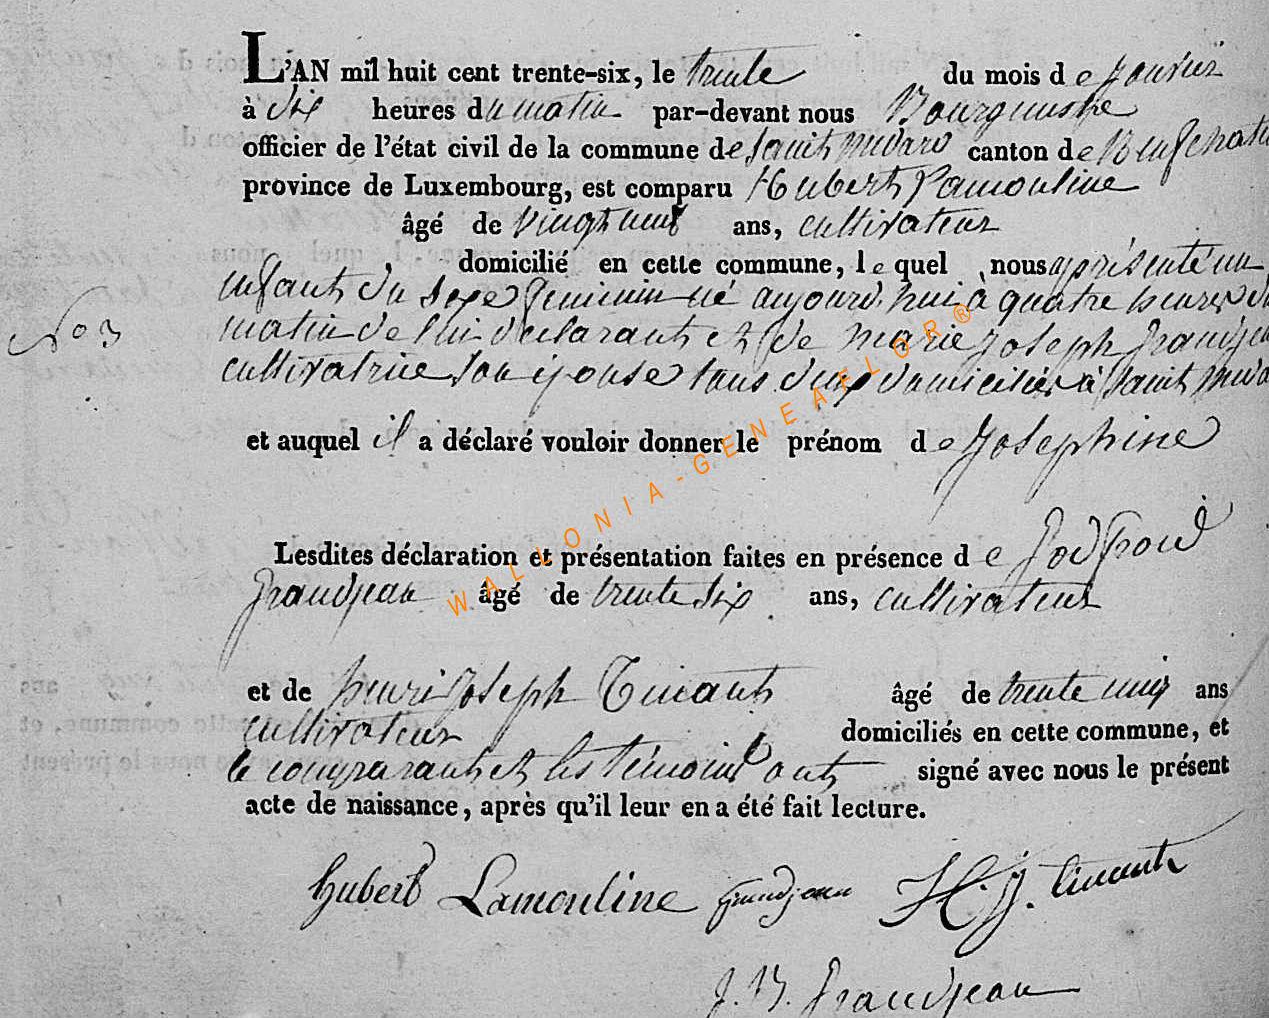 L'AN mil huit cent trente-six, le trente du mois de janvier
à dix heures du matin par-devant nous Bourgmestre
officier de l'état civil de la commune de Saint Medard canton de Neufchateau
province de Luxembourg, est comparu Hubert Lamouline
âgé de vingt neuf ans, cultivateur
domicilié en cette commune, lequel nous a présenté un
enfant du sexe feminin né aujourd'hui à quatre heures du
N° 3
matin de lui déclarant et de marie joseph grandjean
cultivatrice son épouse tous deux domiciliés à Saint Medard
et auquel il a déclaré vouloir donner le prénom de Josephine
Lesdites déclaration et présentation faites en présence de Godfroid
grandjean âgé de trente six ans, cultivateur
et de henri joseph Tinant âgé de trente ans
cultivateur domiciliés en cette commune, et
le comparant et les témoins ont signé avec nous le présent
acte de naissance, après qu'il leur en a été fait lecture.
hubert Lamouline grandjean H. J. tinant
J. B. Grandjean
WALLONIA-GENEAFLOR®